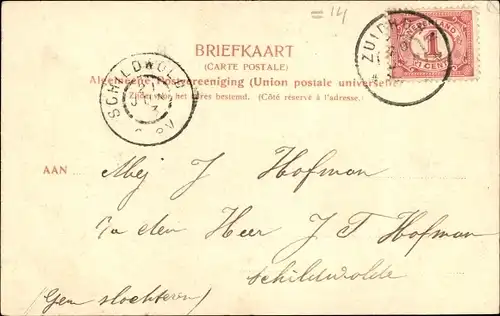 = 14
BRIEFKAART
(CARTE POSTALE)
Algemeene Postvereeniging (Union postale universelle)
Zijde voor het adres bestemd. (Côté réservé à l'adresse.)
SCHILDWOLDE
ZUIDH
NEDERLAND
1
CENT
AAN
Mej J Hofman
In den Heer J T Hofman
Schildwolde
(Gem slochteren)